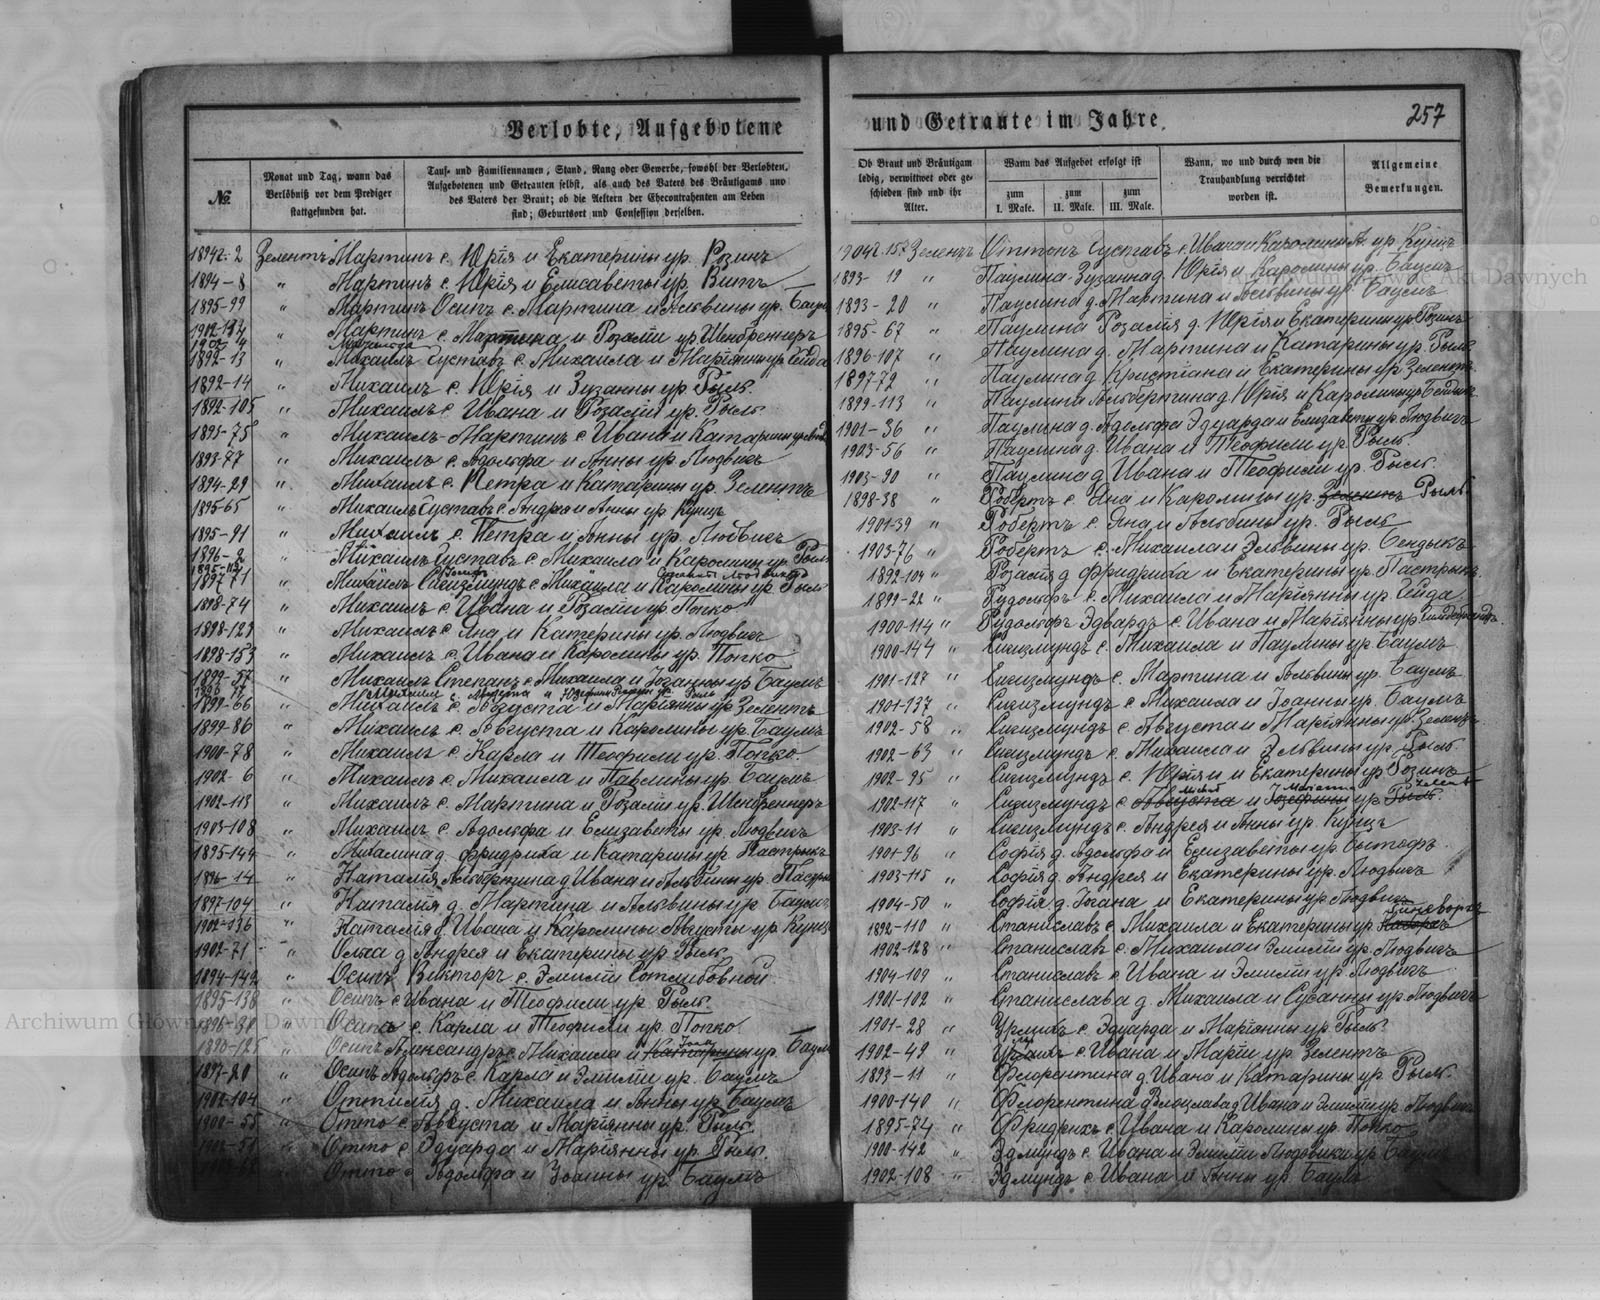 Verlobte, Aufgebotene
№
Monat und Tag, wann das
Verlöbniß vor dem Prediger
stattgefunden hat.
Tauf- und Familiennamen, Stand, Rang oder Gewerbe, sowohl der Verlobten,
Aufgebotenen und Getrauten selbst, als auch des Vaters des Bräutigams und
des Vaters der Braut; ob die Aeltern der Ehecontrahenten am Leben
sind; Geburtsort und Confession derselben.
1894 г. 2 Зелентъ Мартинъ с. Юрія и Екатерины ур. Розинъ
1894-8 " Мартинъ с. Юрія и Елисаветы ур. Витъ
1895-99 " Мартинъ Осипъ с. Мартина и Альвины ур. Баумъ
" Мартинъ с. Мартина и Розаліи ур. Шенбреннеръ
1892-13 " Михаилъ Густавъ с. Михаила и Маріянны ур. Гейда
1892-14 " Михаилъ с. Юрія и Зузанны ур. Рыль
1892-105 " Михаилъ с. Ивана и Розаліи ур. Рыль
1893-75 " Михаилъ-Мартинъ с. Ивана и Катарины
1893-77 " Михаилъ с. Адольфа и Анны ур. Людвигъ
1894-29 " Михаилъ с. Петра и Катарины ур. Зелентъ
1895-65 " Михаилъ Густавъ с. Андрея и Анны ур. Кунцъ
1895-91 " Михаилъ с. Петра и Анны ур. Людвигъ
1896-2 " Михаилъ Густавъ с. Михаила и Каролины ур. Рыль
1897-71 " Михаилъ Сигизмундъ с. Михаила и Каролины ур. Рыль
1898-74 " Михаилъ с. Ивана и Розаліи ур. Попко
1898-123 " Михаилъ с. Яна и Катерины ур. Людвигъ
1898-153 " Михаилъ с. Ивана и Каролины ур. Попко
1899-37 " Михаилъ Степанъ с. Михаила и Іоганны ур. Баумъ
1899-66 " Михаилъ с. Августа и Маріянны ур. Зелентъ
1899-86 " Михаилъ с. Августа и Каролины ур. Баумъ
1900-78 " Михаилъ с. Карла и Теофили ур. Попко.
1902-6 " Михаилъ с. Михаила и Павлины ур. Баумъ
1902-113 " Михаилъ с. Мартина и Розаліи ур. Шенбреннеръ
1903-108 " Михаилъ с. Адольфа и Елизаветы ур. Людвигъ
1895-144 " Михалина д. Фридриха и Катарины ур. Пастрыкъ
1896-14 " Наталія Альбертина д. Ивана и Альбины ур.
1897-104 " Наталія д. Мартина и Альвины ур. Баумъ
1902-136 " Наталія д. Ивана и Каролины Августы ур. Кунцъ
1902-71 " Ольга д. Андрея и Екатерины ур. Рыль
1894-142 " Осипъ Викторъ с. Эмиліи Готлибовной
1895-138 " Осипъ с. Ивана и Теофили ур. Рыль.
" Осипъ с. Карла и Теофили ур. Попко.
" Осипъ Александръ с. Михаила и Катарины ур. Баумъ
1897-80 " Осипъ Адольфъ с. Карла и Эмиліи ур. Баумъ
1902-104 " Оттилія д. Михаила и Анны ур. Баумъ
1900-55 " Отто с. Августа и Маріянны ур. Рыль.
" Отто с. Эдуарда и Маріянны ур. Рыль.
" Отто с. Адольфа и Зоанны ур. Баумъ
und Getraute im Jahre
257
Ob Braut und Bräutigam
ledig, verwittwet oder ge-
schieden sind und ihr
Alter.
Wann das Aufgebot erfolgt ist
zum
I. Male.
zum
II. Male.
zum
III. Male.
Wann, wo und durch wen die
Trauhandlung verrichtet
worden ist.
Allgemeine
Bemerkungen.
Зелентъ Оттонъ Густавъ с. Ивана и Каролины А. ур. Кунцъ
1893-19 " Паулина-Зузанна д. Юрія и Каролины ур. Баумъ
1893-20 " Паулина д. Мартина и Альвины ур. Баумъ
1895-67 " Паулина Розалія д. Юрія и Екатерины ур. Розинъ
1896-107 " Паулина д. Мартина и Катарины ур. Рыль
1897-72 " Паулина д. Кристіана и Екатерины ур. Зелентъ
1899-113 " Паулина Альбертина д. Юрія и Каролины ур.
1901-36 " Паулина д. Адольфа Эдуарда и Елизаветы ур. Людвигъ
1903-56 " Паулина д. Ивана и Теофили ур. Рыль.
1903-90 " Паулина д. Ивана и Теофили ур. Рыль.
1898-38 " Робертъ с. Яна и Каролины ур. Зелентъ Рыль
1901-39 " Робертъ с. Яна и Альбины ур. Рыль
1903-76 " Робертъ с. Михаила и Эльвины ур. Бендыкъ
1892-104 " Розалія д. Фридриха и Екатерины ур. Пастрыкъ
1899-22 " Рудольфъ с. Михаила и Маріянны ур. Гейда.
1900-114 " Рудольфъ Эдвардъ с. Ивана и Маріянны ур.
1900-144 " Сигизмундъ с. Михаила и Паулины ур. Баумъ
1901-127 " Сигизмундъ с. Мартина и Альвины ур. Баумъ
1901-137 " Сигизмундъ с. Михаила и Іоанны ур. Баумъ
1902-58 " Сигизмундъ с. Августа и Маріянны ур. Зелентъ
1902-63 " Сигизмундъ с. Михаила и Эльвины ур. Рыль.
1902-95 " Сигизмундъ с. Юрія и Екатерины ур. Розинъ
1902-117 " Сигизмундъ с. Августа и Іозефины ур. Рыль.
1903-11 " Сигизмундъ с. Андрея и Анны ур. Кунцъ
1901-96 " Софія д. Адольфа и Елизаветы ур.
1903-115 " Софія д. Андрея и Екатерины ур. Людвигъ
1904-50 " Софія д. Іогана и Екатерины ур. Людвигъ
1892-110 " Станиславъ с. Михаила и Екатерины ур.
1902-128 " Станиславъ с. Михаила и Эмиліи ур. Людвигъ
1904-109 " Станиславъ с. Ивана и Эмиліи ур. Людвигъ
1901-102 " Станислава д. Михаила и Сузанны ур. Людвигъ
1901-28 " Урлихъ с. Эдуарда и Маріянны ур. Рыль.
1902-49 " с. Ивана и Маріи ур. Зелентъ
1893-11 " Флорентина д. Ивана и Катарины ур. Рыль.
1900-140 " Флорентина д. Ивана и Эмиліи ур. Людвигъ
1895-74 " Фридрихъ с. Ивана и Каролины ур. Попко
1900-142 " Эдмундъ с. Ивана и Эмиліи Людовики ур. Баумъ
1902-108 " Эдмундъ с. Ивана и Анны ур. Баумъ
Archiwum Główne Akt Dawnych
Archiwum Główne Akt Dawnych